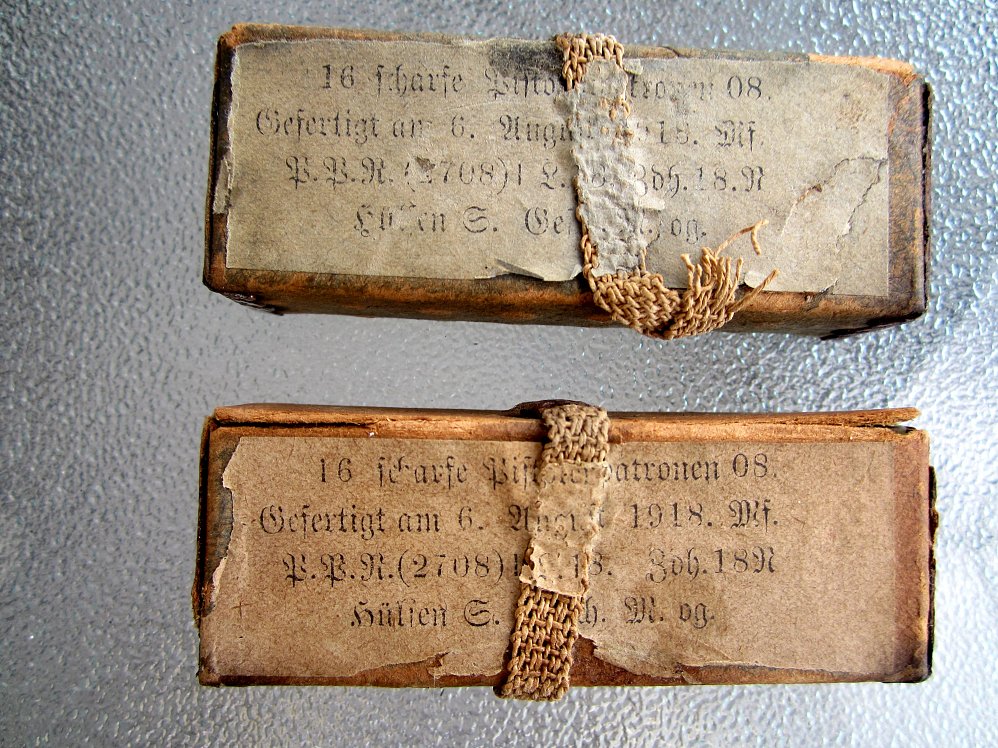 16 scharfe Pistolenpatronen 08.
Gefertigt am 6. August 1918. Mf.
P.P.R. (2708) 18. Zdh. 18. N
Hülsen S. Ge og.
16 scharfe Pistolenpatronen 08.
Gefertigt am 6. August 1918. Mf.
P.P.R. (2708) 18. Zdh. 18 N
Hülsen S. ch. M. og.